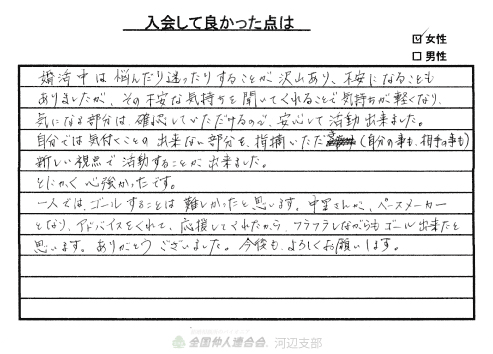 入会して良かった点は
☑ 女性
□ 男性
婚活中は悩んだり迷ったりすることが沢山あり、不安になることも
ありましたが、その不安な気持ちを聞いてくれることで気持ちが軽くなり、
気になる部分は、確認していただけるので、安心して活動出来ました。
自分では気付くことの出来ない部分も、指摘いただき(自分の事も、相手の事も)
新しい視点で活動することが出来ました。
とにかく心強かったです。
一人では、ゴールすることは難しかったと思います。中里さんが、ペースメーカー
となり、アドバイスをくれて、応援してくれたから、フラフラしながらもゴール出来たと
思います。ありがとうございました。今後も、よろしくお願いします。
全国仲人連合会 河辺支部